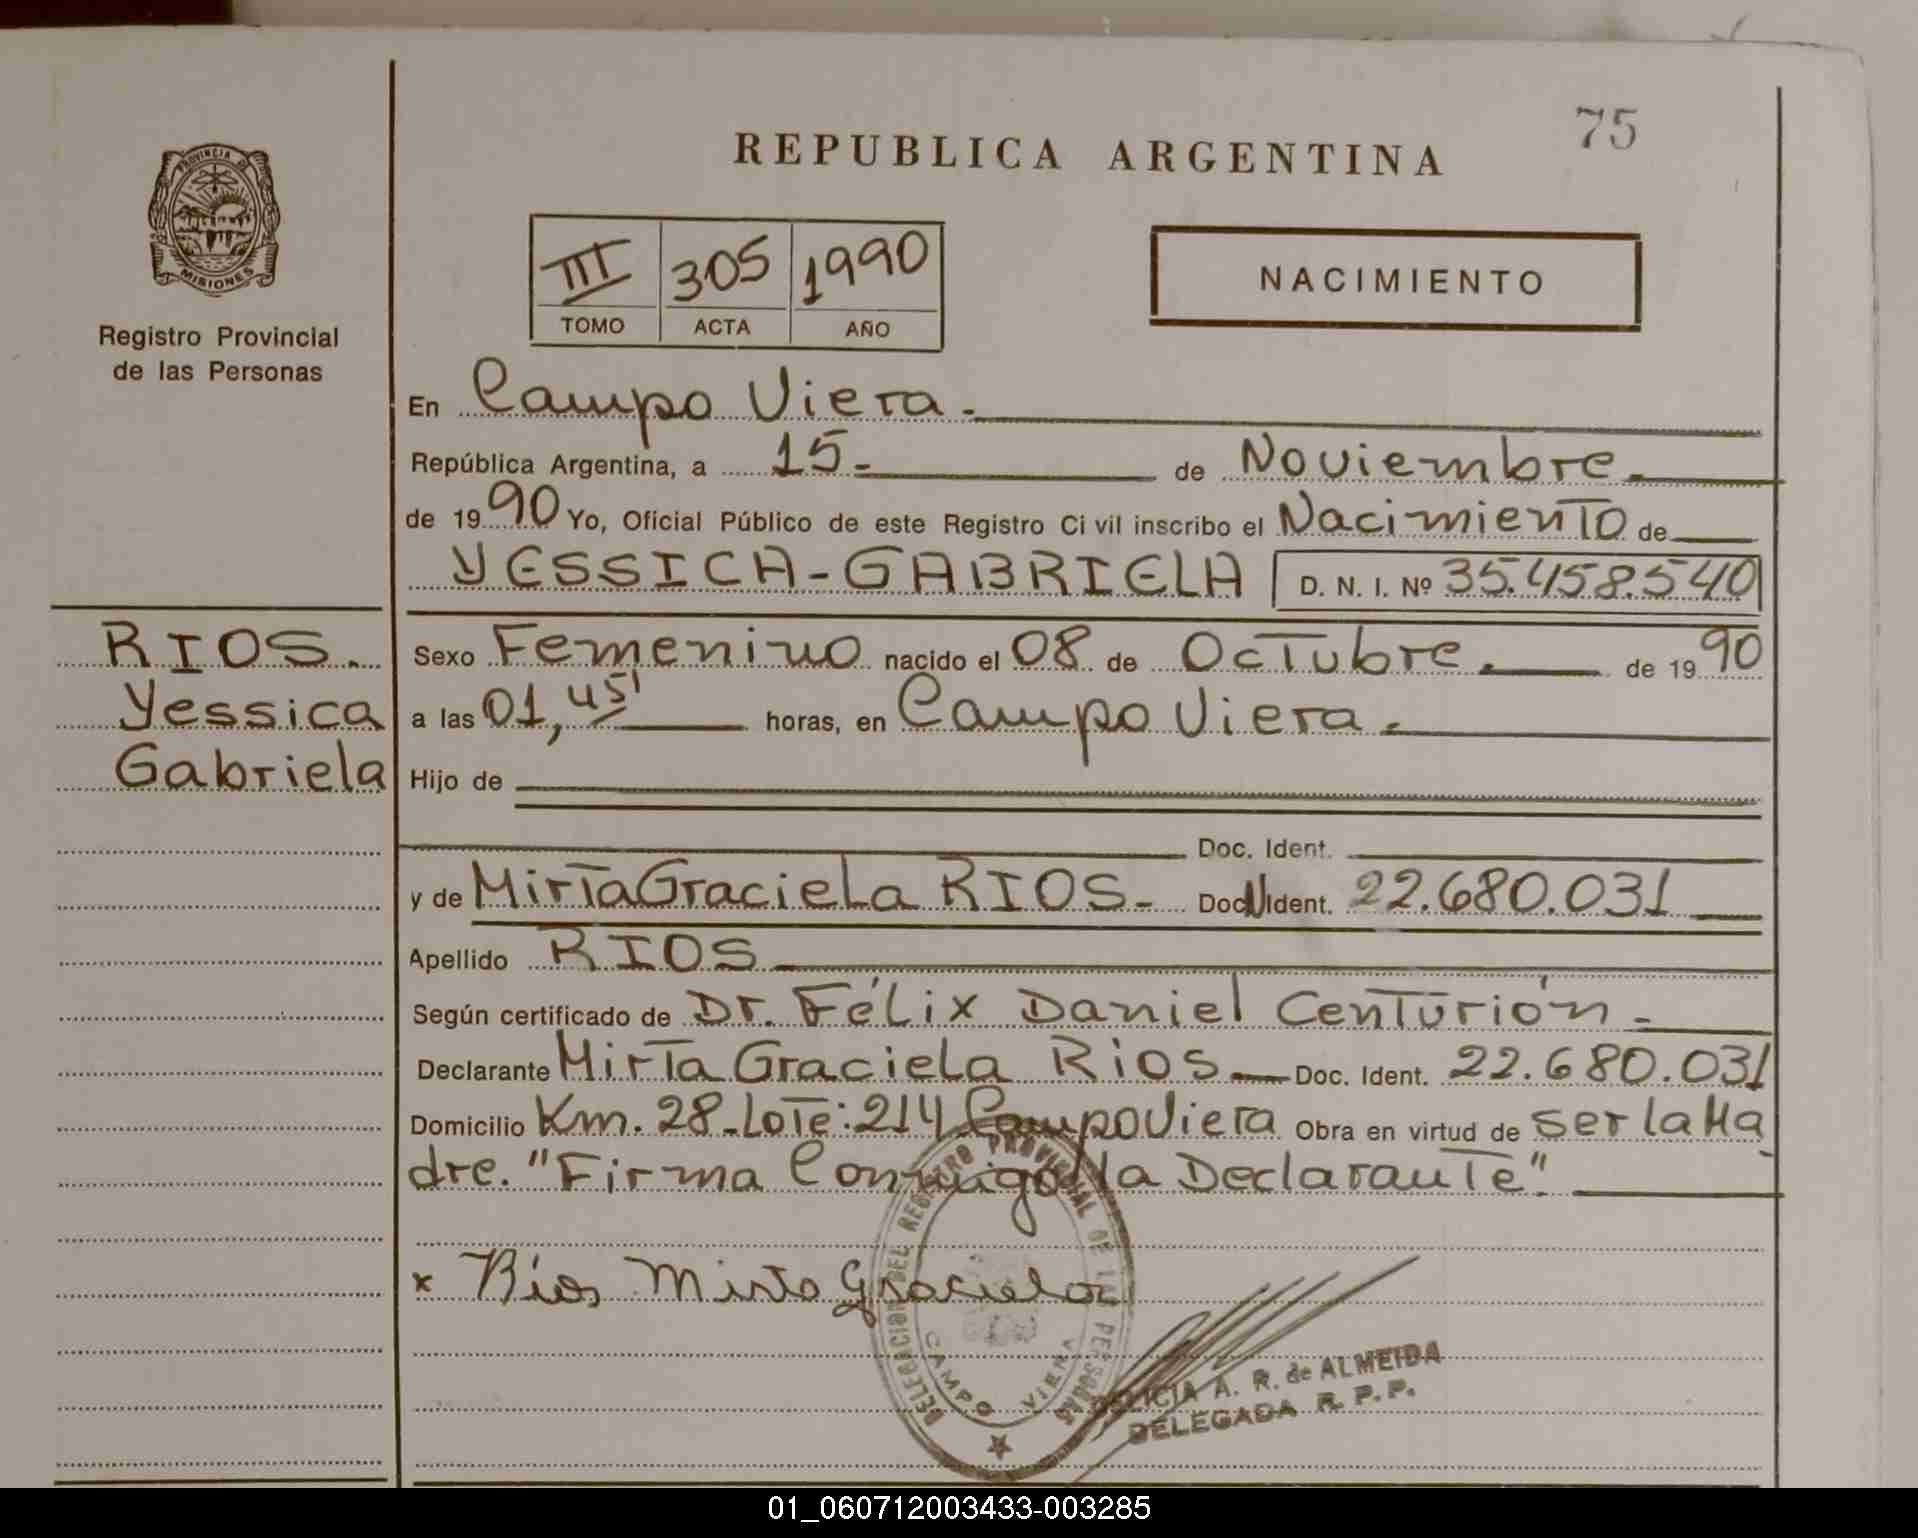 75
REPUBLICA ARGENTINA
PROVINCIA DE
MISIONES
Registro Provincial
de las Personas
III 305 1990
TOMO ACTA AÑO
NACIMIENTO
En Campo Viera.
República Argentina, a 15 de Noviembre.
de 1990 Yo, Oficial Público de este Registro Civil inscribo el Nacimiento de
YESSICA-GABRIELA D. N. I. Nº 35.458.540
RIOS.
Yessica
Gabriela
Sexo Femenino nacido el 08 de Octubre. de 1990
a las 01,45' horas, en Campo Viera.
Hijo de
Doc. Ident.
y de Mirta Graciela RIOS- Doc. Ident. 22.680.031
Apellido RIOS
Según certificado de Dr. Félix Daniel Centurión-
Declarante Mirta Graciela Rios Doc. Ident. 22.680.031
Domicilio Km. 28-Lote:214 Campo Viera Obra en virtud de ser la Ma
dre. "Firma Conmigo la Declarante"
x Rios Mirta Graciela
DELEGACION DEL REGISTRO PROVINCIAL DE LAS PERSONAS
CAMPO VIERA
A. R. de ALMEIDA
DELEGADA R. P. P.
01_060712003433-003285